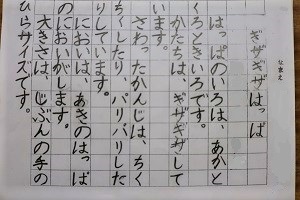 ぎザギザはっぱ
なまえ
はっぱのいろは、あかと
くろときいろです。
かたちは、ギザギザして
います。
さわったかんじは、ちく
ちくしたり、パリパリした
りしています。
においは、あきのはっぱ
のにおいがします。
大きさは、じぶんの手の
ひらサイズです。